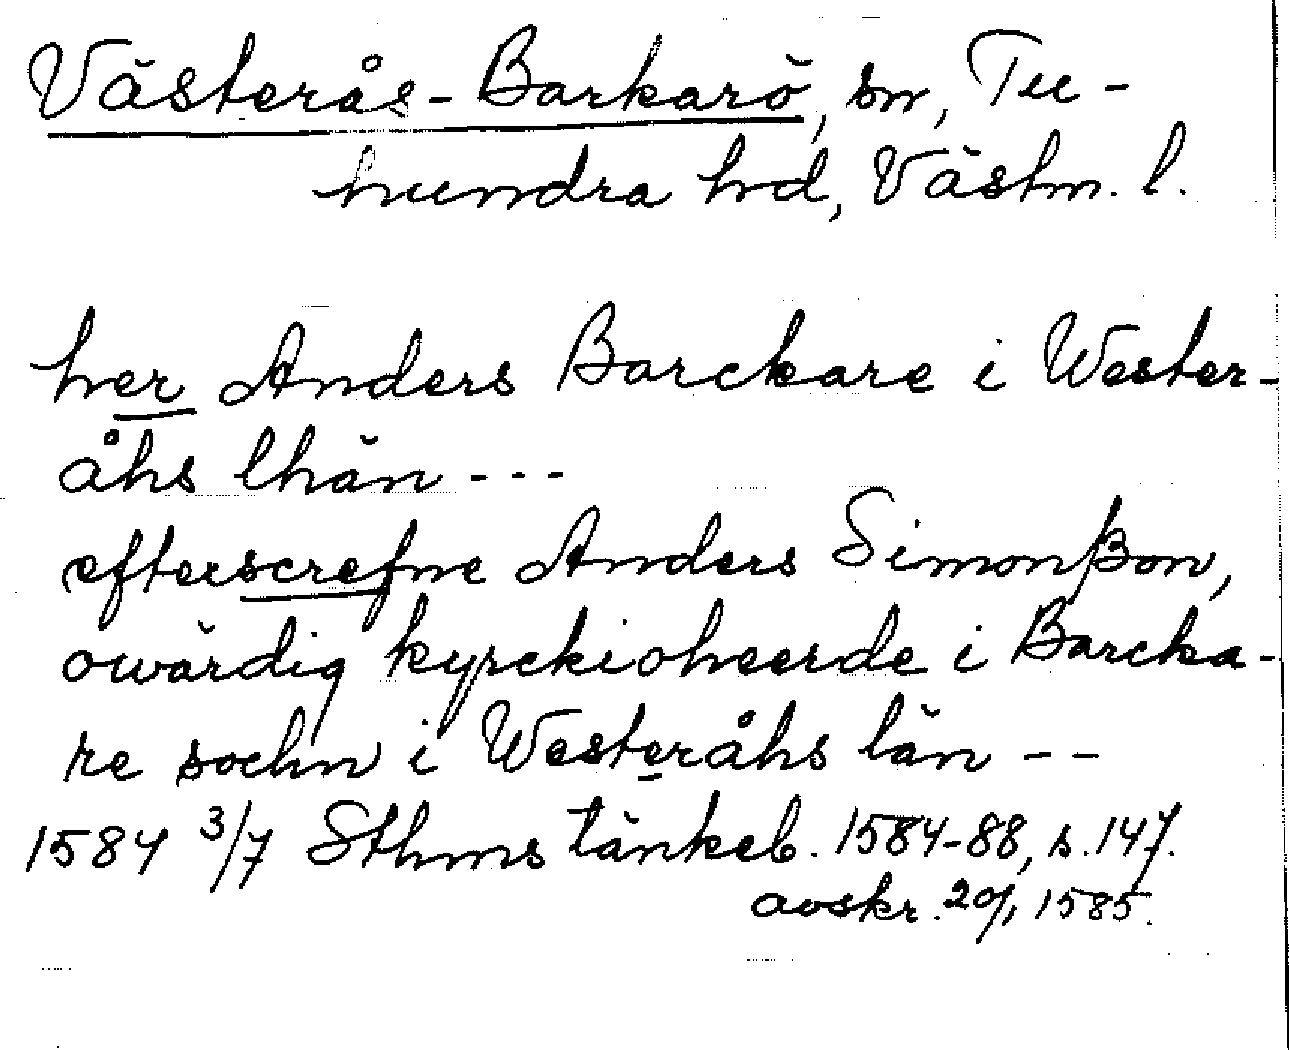 Västerås-Barkarö, sn, Tu-
hundra hd, Västm. l.
her Anders Barckare i Wester-
åhs lhän - - -
efterscrefne Anders Simonßon,
owärdig kyrckioheerde i Barcka-
re sochn i Westeråhs län - -
1584 3/7 Sthms tänkeb. 1584-88, s. 147.
avskr. 20/1 1585.